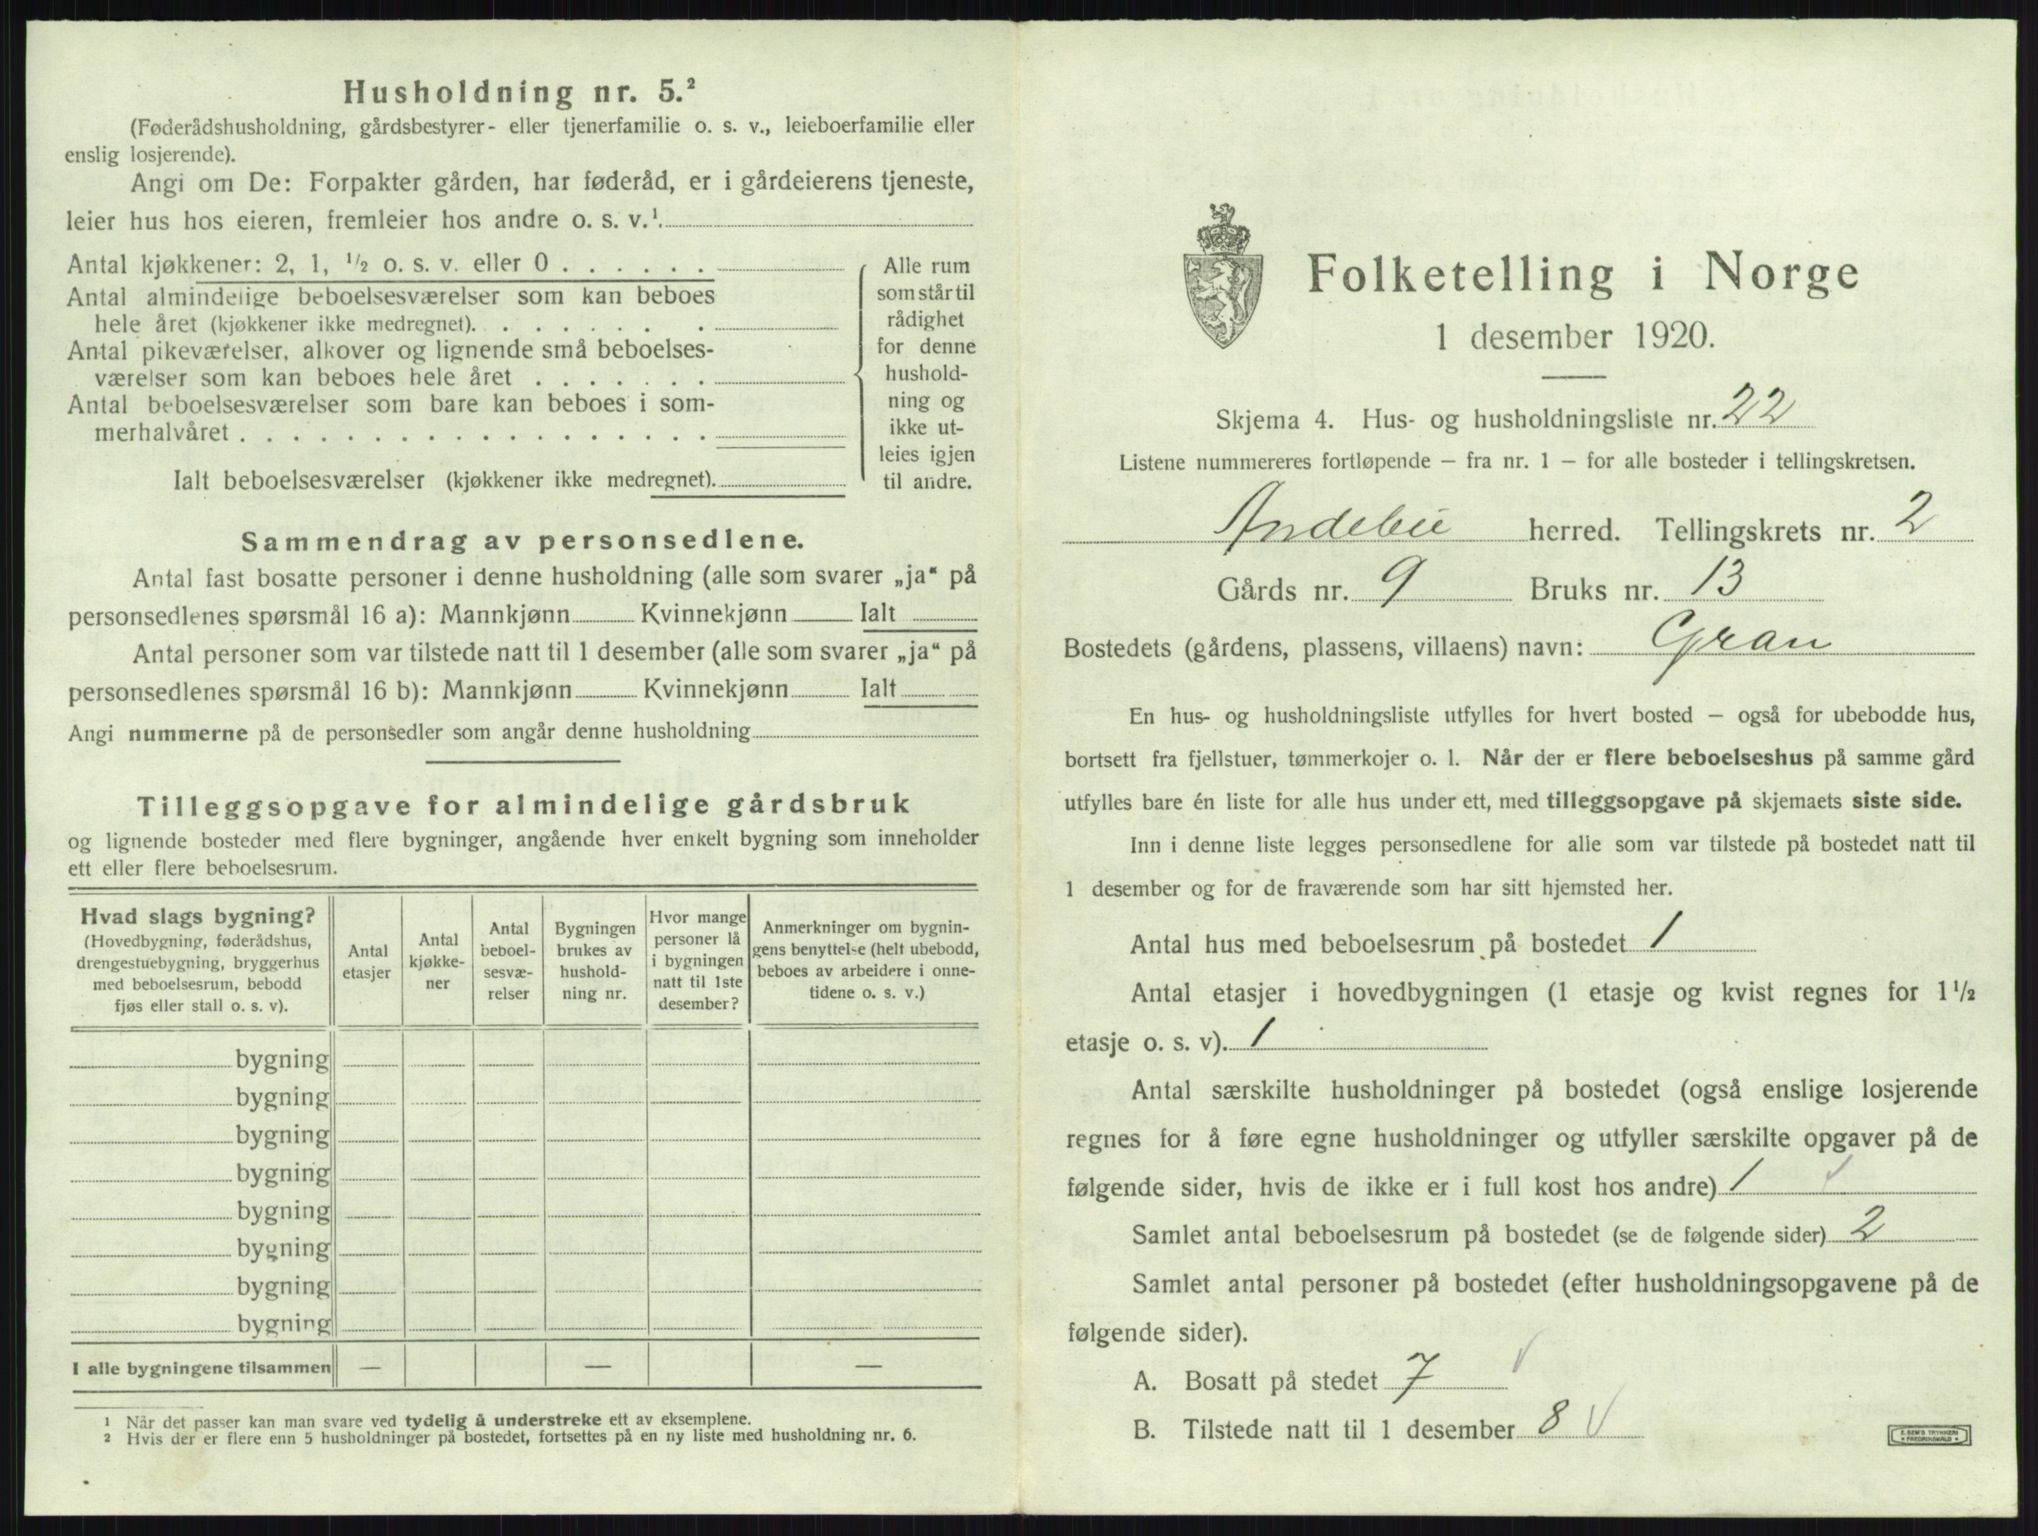 Husholdning nr. 5.²
(Føderådshusholdning, gårdsbestyrer- eller tjenerfamilie o. s. v., leieboerfamilie eller
enslig losjerende).
Angi om De: Forpakter gården, har føderåd, er i gårdeierens tjeneste,
leier hus hos eieren, fremleier hos andre o. s. v.¹.
Antal kjøkkener: 2, 1, ½ o. s. v. eller 0 . . . . . .
Antal almindelige beboelsesværelser som kan beboes
hele året (kjøkkener ikke medregnet). . . . . . . .
Antal pikeværelser, alkover og lignende små beboelses-
værelser som kan beboes hele året . . . . . . .
Antal beboelsesværelser som bare kan beboes i som-
merhalvåret . . . . . . . . . . . . . . . . . .
Ialt beboelsesværelser (kjøkkener ikke medregnet).
Alle rum
som står til
rådighet
for denne
hushold-
ning og
ikke ut-
leies igjen
til andre.
Sammendrag av personsedlene.
Antal fast bosatte personer i denne husholdning (alle som svarer „ja“ på
personsedlenes spørsmål 16 a): Mannkjønn Kvinnekjønn Ialt
Antal personer som var tilstede natt til 1 desember (alle som svarer „ja“ på
personsedlenes spørsmål 16 b): Mannkjønn Kvinnekjønn Ialt
Angi nummerne på de personsedler som angår denne husholdning
Tilleggsopgave for almindelige gårdsbruk
og lignende bosteder med flere bygninger, angående hver enkelt bygning som inneholder
ett eller flere beboelsesrum.
Hvad slags bygning?
(Hovedbygning, føderådshus,
drengestuebygning, bryggerhus
med beboelsesrum, bebodd
fjøs eller stall o. s. v).
Antal
etasjer
Antal
kjøkke-
ner
Antal
beboel-
sesvæ-
relser
Bygningen
brukes av
hushold-
ning nr.
Hvor mange
personer lå
i bygningen
natt til 1ste
desember?
Anmerkninger om bygnin-
gens benyttelse (helt ubebodd,
beboes av arbeidere i onne-
tidene o. s. v.)
bygning
bygning
bygning
bygning
bygning
bygning
bygning
bygning
I alle bygningene tilsammen — — —
¹ Når det passer kan man svare ved tydelig å understreke ett av eksemplene.
² Hvis der er flere enn 5 husholdninger på bostedet, fortsettes på en ny liste med husholdning nr. 6.
Folketelling i Norge
1 desember 1920.
Skjema 4. Hus- og husholdningsliste nr. 22
Listene nummereres fortløpende — fra nr. 1 — for alle bosteder i tellingskretsen.
Andebu herred. Tellingskrets nr. 2
Gårds nr. 9 Bruks nr. 13
Bostedets (gårdens, plassens, villaens) navn: Gran
En hus- og husholdningsliste utfylles for hvert bosted — også for ubebodde hus,
bortsett fra fjellstuer, tømmerkojer o. l. Når der er flere beboelseshus på samme gård
utfylles bare én liste for alle hus under ett, med tilleggsopgave på skjemaets siste side.
Inn i denne liste legges personsedlene for alle som var tilstede på bostedet natt til
1 desember og for de fraværende som har sitt hjemsted her.
Antal hus med beboelsesrum på bostedet 1
Antal etasjer i hovedbygningen (1 etasje og kvist regnes for 1½
etasje o. s. v). 1
Antal særskilte husholdninger på bostedet (også enslige losjerende
regnes for å føre egne husholdninger og utfyller særskilte opgaver på de
følgende sider, hvis de ikke er i full kost hos andre) 1
Samlet antal beboelsesrum på bostedet (se de følgende sider) 2
Samlet antal personer på bostedet (efter husholdningsopgavene på de
følgende sider).
A. Bosatt på stedet 7
B. Tilstede natt til 1 desember 8
E. SEM'S TRYKKERI
FREDRIKSHALD